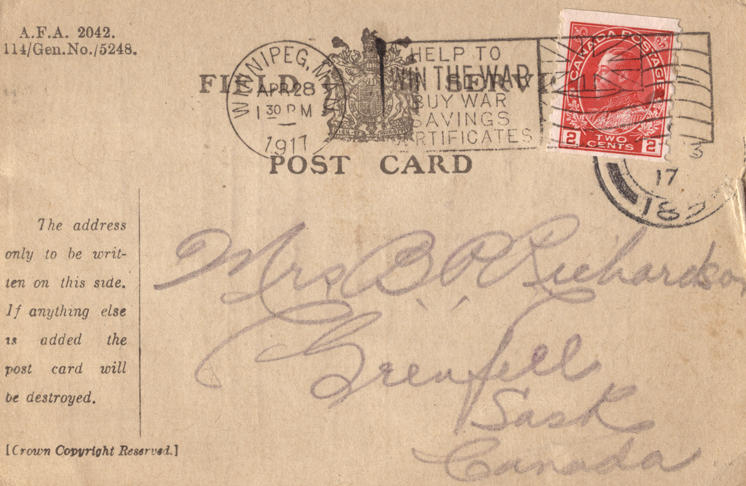 A.F.A. 2042.
114/Gen.No./5248.
WINNIPEG, MAN.
APR 28
1 30 PM
1917
HELP TO
WIN THE WAR
BUY WAR
SAVINGS
CERTIFICATES
CANADA POSTAGE
2 TWO CENTS 2
3
17
182
FIELD SERV
POST CARD
The address
only to be writ-
ten on this side.
If anything else
is added the
post card will
be destroyed.
[Crown Copyright Reserved.]
Mrs B R Richardson
Grenfell
Sask
Canada